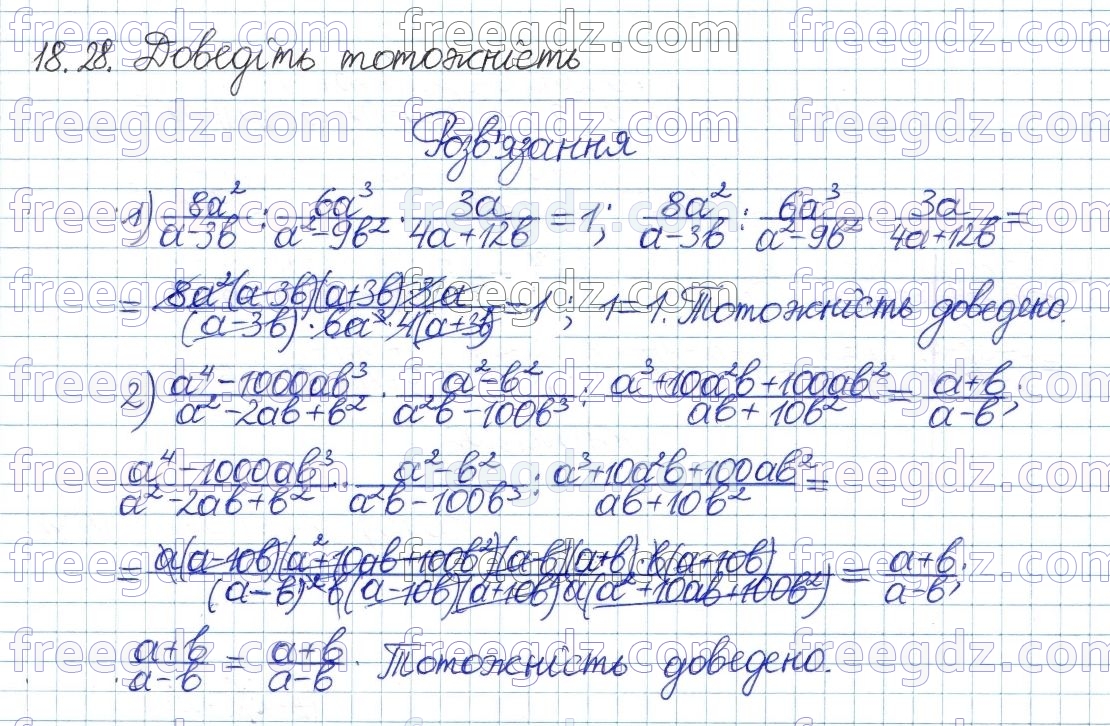 18.28. Доведіть тотожність
Розв'язання
1) 8a²/(a-3b) : 6a³/(a²-9b²) · 3a/(4a+12b) = 1; 8a²/(a-3b) : 6a³/(a²-9b²) · 3a/(4a+12b) =
= 8a²(a-3b)(a+3b)·3a/((a-3b)·6a³·4(a+3b)) = 1; 1=1. Тотожність доведено.
2) (a⁴-1000ab³)/(a²-2ab+b²) · (a²-b²)/(a²b-100b³) : (a³+10a²b+100ab²)/(ab+10b²) = (a+b)/(a-b);
(a⁴-1000ab³)/(a²-2ab+b²) · (a²-b²)/(a²b-100b³) : (a³+10a²b+100ab²)/(ab+10b²) =
= a(a-10b)(a²+10ab+100b²)(a-b)(a+b)·b(a+10b)/((a-b)²b(a-10b)(a+10b)a(a²+10ab+100b²)) = (a+b)/(a-b);
(a+b)/(a-b) = (a+b)/(a-b). Тотожність доведено.
freegdz.com freegdz.com freegdz.com